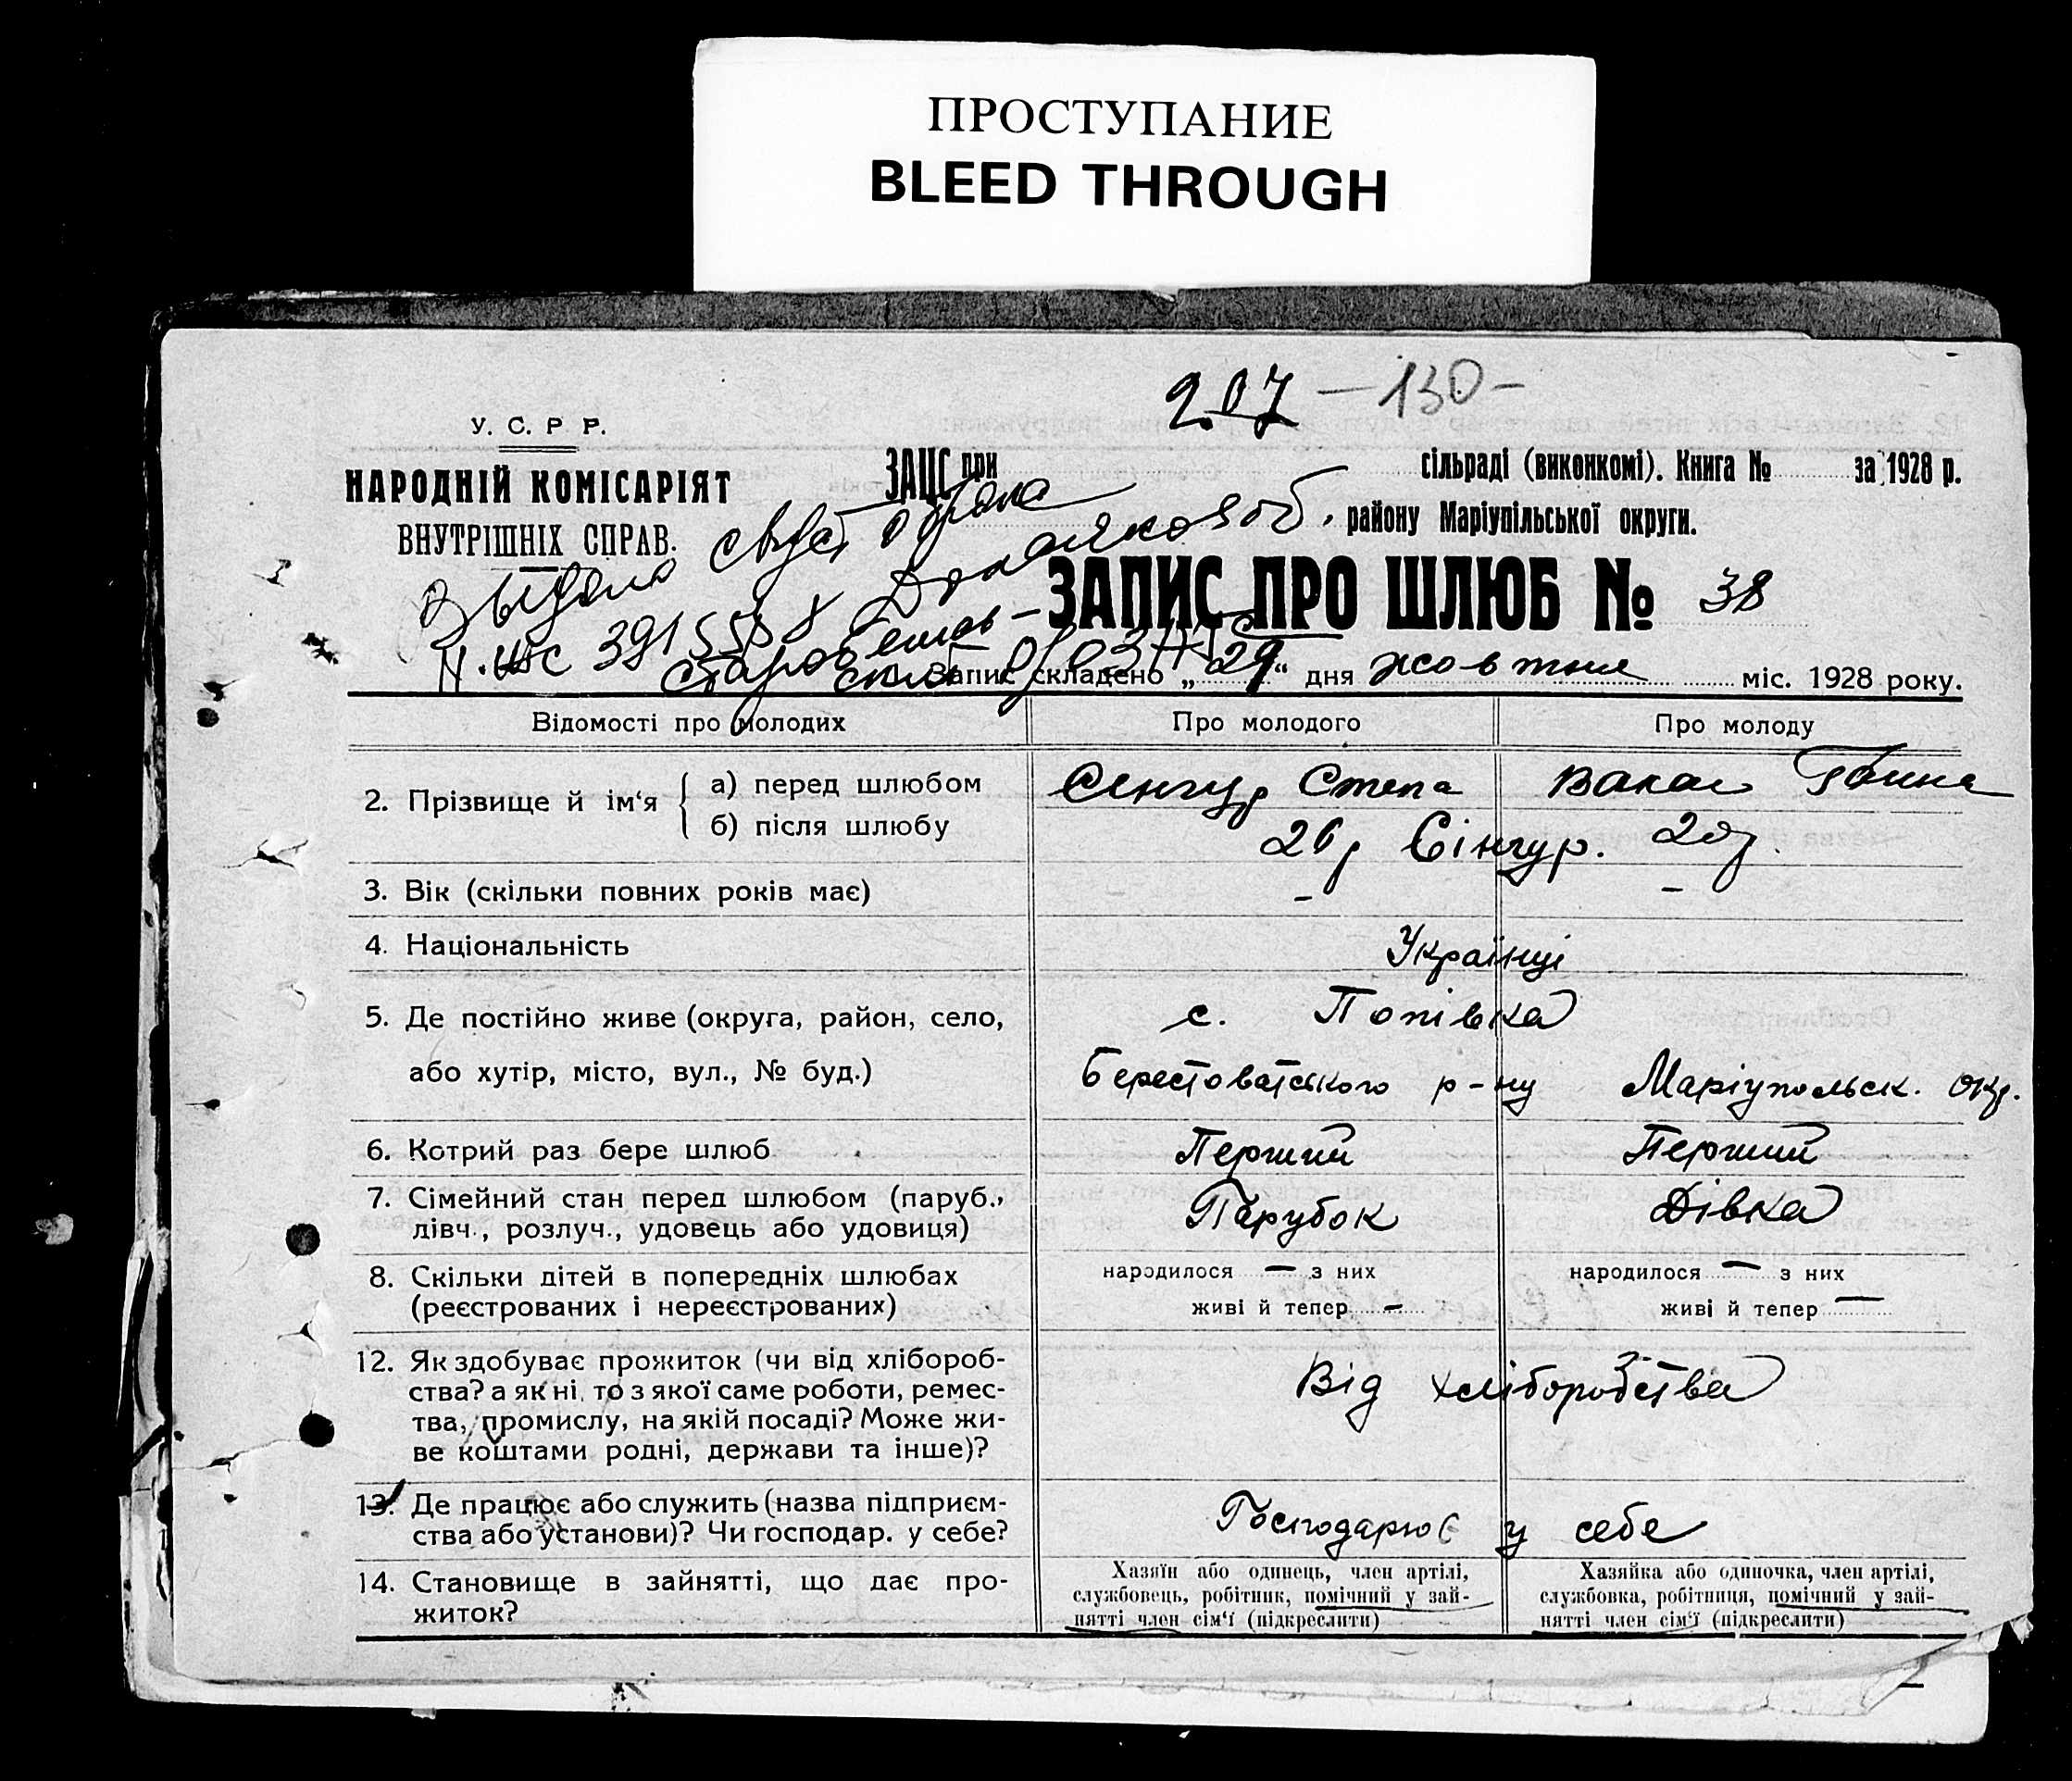 ПРОСТУПАНИЕ
BLEED THROUGH
207 -130-
У. С. Р Р.
НАРОДНІЙ КОМІСАРІЯТ
ВНУТРІШНІХ СПРАВ.
ЗАЦС при сільраді (виконкомі). Книга № за 1928 р.
району Маріупільської округи.
ЗАПИС ПРО ШЛЮБ № 38
Запис складено „29“ дня жовтня міс. 1928 року.
Відомості про молодих Про молодого Про молоду
2. Прізвище й ім‘я а) перед шлюбом Сенгур Степа Ганна
б) після шлюбу 26р Сінгур. 20р.
3. Вік (скільки повних років має) - -
4. Національність Українці
5. Де постійно живе (округа, район, село, с. Попівка
або хутір, місто, вул., № буд.) Берестоватського р-ну Маріупольск. окр.
6. Котрий раз бере шлюб Перший Перший
7. Сімейний стан перед шлюбом (паруб., Парубок Дівка
дівч., розлуч., удовець або удовиця)
8. Скільки дітей в попередніх шлюбах народилося — з них народилося — з них
(реєстрованих і нереєстрованих) живі й тепер — живі й тепер —
12. Як здобуває прожиток (чи від хлібороб-
ства? а як ні, то з якої саме роботи, ремес- Від хліборобства
тва, промислу, на якій посаді? Може жи-
ве коштами родні, держави та інше)?
13. Де працює або служить (назва підприєм-
ства або установи)? Чи господар. у себе? Господарює у себе
14. Становище в зайнятті, що дає про- Хазяїн або одинець, член артілі, Хазяйка або одиночка, член артілі,
житок? службовець, робітник, помічний у зай- службовка, робітниця, помічний у зай-
нятті член сім‘ї (підкреслити) нятті член сім‘ї (підкреслити)